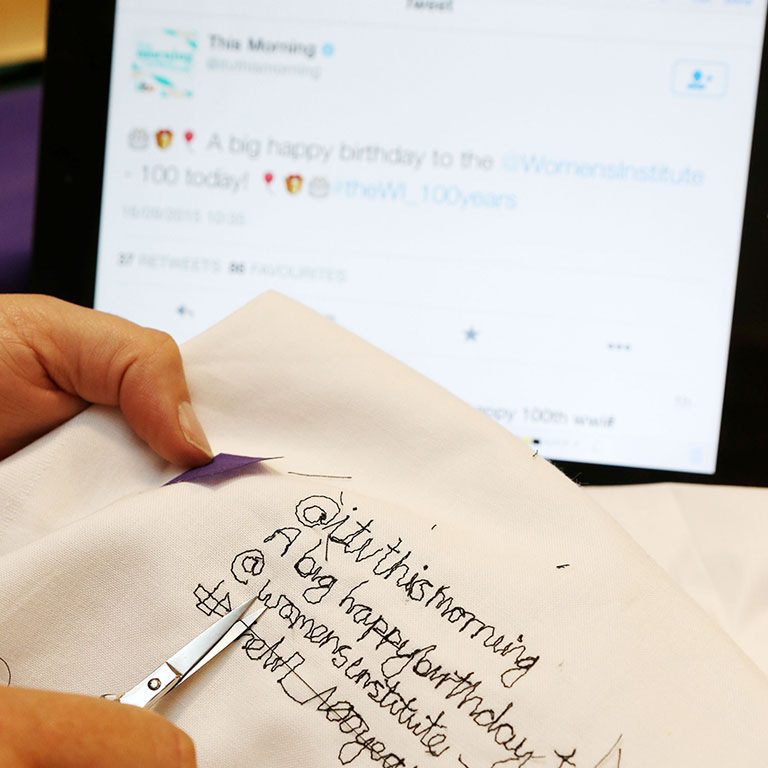 Tweet
This Morning
@itvthismorning
A big happy birthday to the @WomensInstitute
- 100 today! #theWI_100years
16/09/2015 10:20
37 RETWEETS 86 FAVOURITES
happy 100th
@itvthismorning
A big happy birthday t
@womensinstitute -
#theWI_100yea